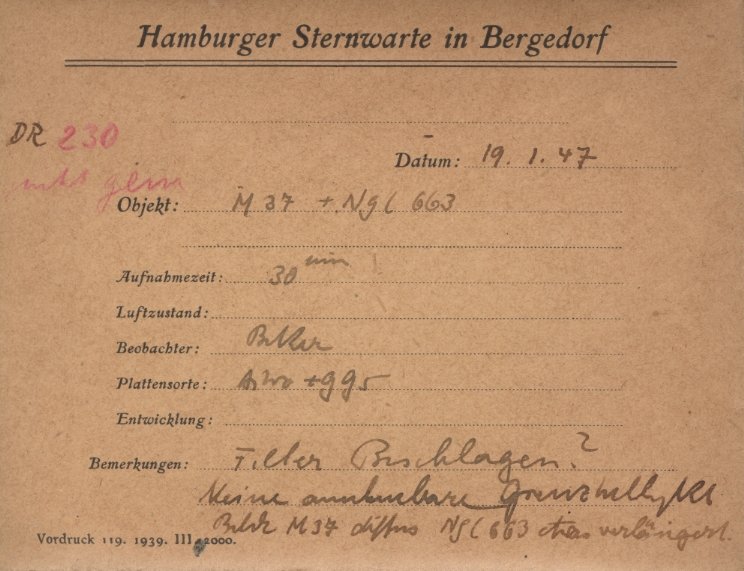 Hamburger Sternwarte in Bergedorf
DR 230
Datum: 19. 1. 47
Objekt: M 37 + NGC 663
Aufnahmezeit: 30 min
Luftzustand:
Beobachter:
Plattensorte: + gg5
Entwicklung:
Bemerkungen: Filter Beschlagen?
Keine
Bilder M 37 diffus NGC 663 etwas verlängert.
Vordruck 119. 1939. III. 2000.